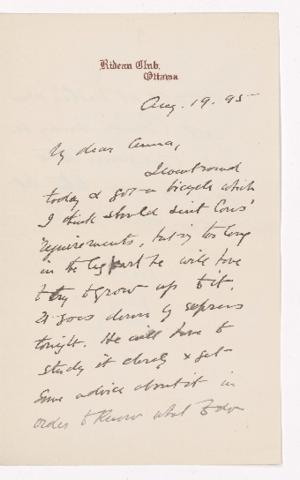 Rideau Club,
Ottawa
Aug. 19. 95
My dear Anna,
I went round
today & got a bicycle which
I think should suit
requirements, but is too long
in the leg part he will have
to try to grow up to it.
It goes down by express
tonight. He will have to
study it closely & get
some advice about it in
order to know what to do